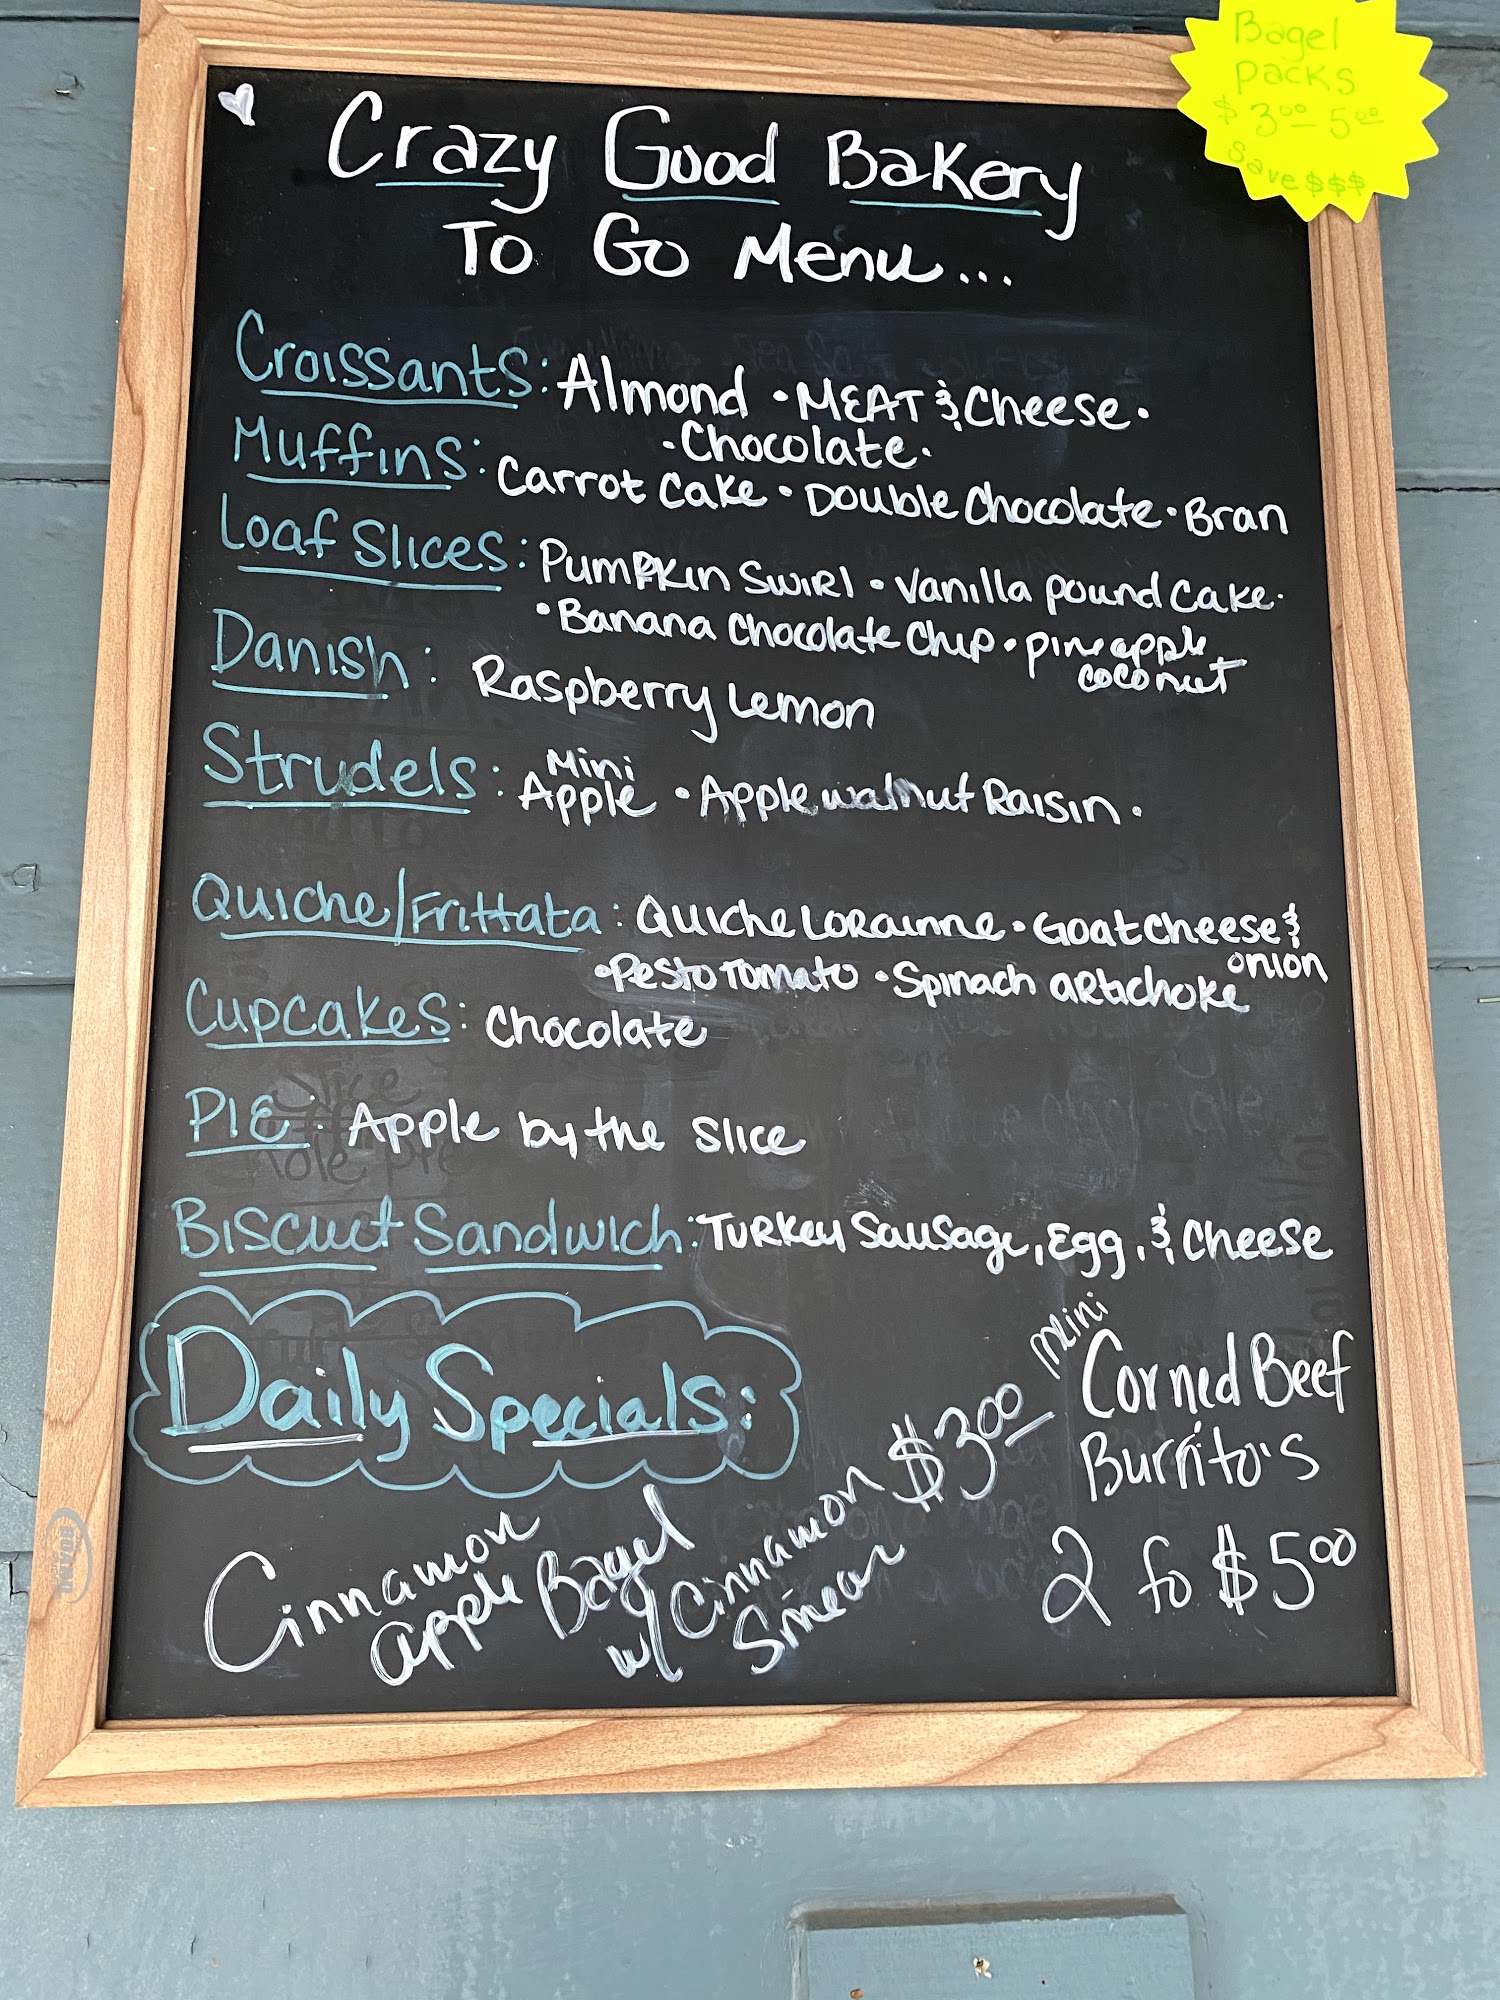 Bagel
packs
$3.00-5.00
Save $$$
Crazy Good Bakery
To Go Menu...
Croissants: Almond • MEAT & Cheese •
• Chocolate •
Muffins: Carrot Cake • Double Chocolate • Bran
Loaf Slices: Pumpkin Swirl • Vanilla Pound Cake •
• Banana Chocolate Chip • pineapple
coconut
Danish: Raspberry Lemon
Strudels: Mini Apple • Apple walnut Raisin •
Quiche/Frittata: Quiche Lorainne • Goat Cheese &
onion
• Pesto Tomato • Spinach Artichoke
Cupcakes: Chocolate
PIE: Apple by the Slice
Biscuit Sandwich: Turkey Sausage, Egg, & Cheese
Daily Specials:
Cinnamon
apple Bagel
w/ Cinnamon
Smear
$3.00
Mini
Corned Beef
Burrito's
2 fo $5.00